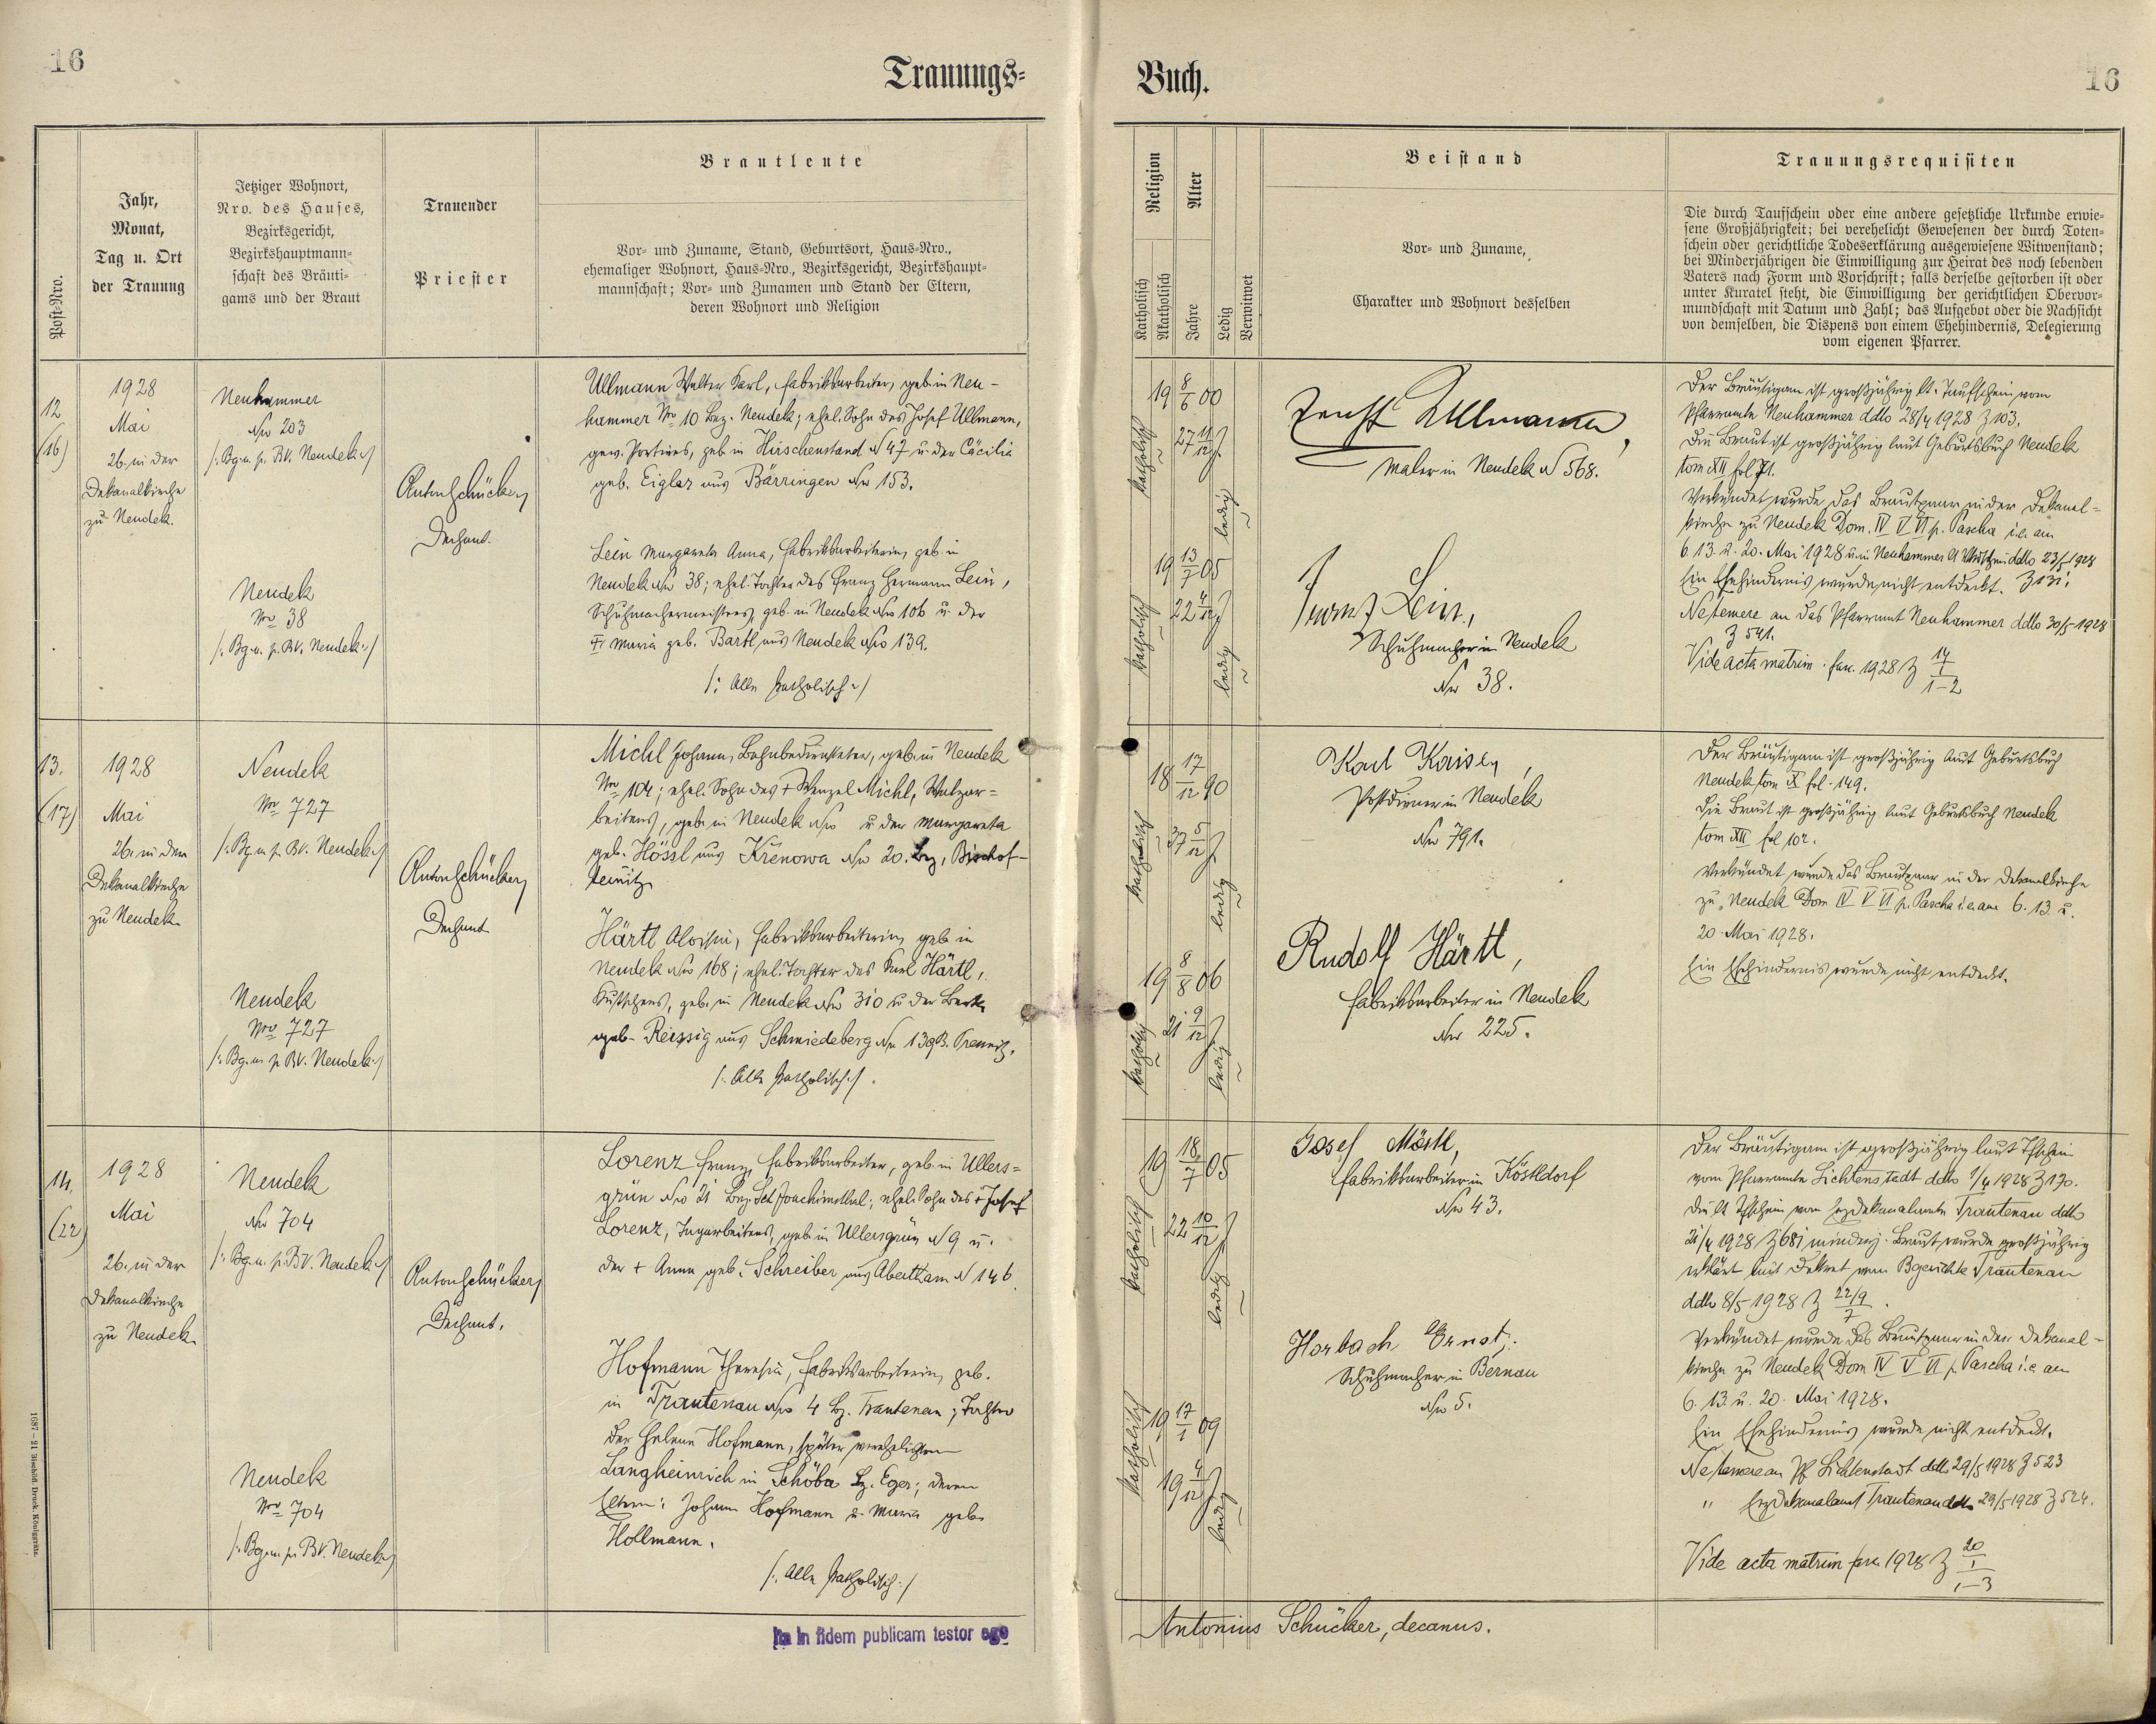 16
Trauungs-
Post-Nro.
Jahr,
Monat,
Tag u. Ort
der Trauung
Jetziger Wohnort,
Nro. des Hauses,
Bezirksgericht,
Bezirkshauptmann-
schaft des Bräuti-
gams und der Braut
Trauender
Priester
Brautleute
Vor- und Zuname, Stand, Geburtsort, Haus-Nro.,
ehemaliger Wohnort, Haus-Nro., Bezirksgericht, Bezirkshaupt-
mannschaft; Vor- und Zunamen und Stand der Eltern,
deren Wohnort und Religion
12
(16)
1928
Mai
26. in der
Dekanalkirche
zu Neudek.
Neuhammer
No 203
/: Bg. u. p. BV. Neudek :/
Neudek
No 38
/: Bg. u. p. BV. Neudek :/
Anton Schücker,
Dechant.
Ullmann Walter Karl, Fabriksarbeiter, geb. in Neu-
hammer No 10 Bez. Neudek; ehel. Sohn des Josef Ullmann,
gew. Portiers, geb. in Hirschenstand No 47 u. der Cäcilia
geb. Eigler aus Bärringen No 153.
Lein Margareta Anna, Fabriksarbeiterin, geb. in
Neudek No 38; ehel. Tochter des Franz Hermann Lein,
Schuhmachermeisters, geb. in Neudek No 106 u. der
Maria geb. Bartl aus Neudek No 139.
/: Alle katholisch :/
13.
(17)
1928
Mai
26. in der
Dekanalkirche
zu Neudek.
Neudek
No 727
/: Bg. u. p. BV. Neudek :/
Neudek
No 727
/: Bg. u. p. BV. Neudek :/
Anton Schücker,
Dechant
Michl Johann, Bahnbediensteter, geb. in Neudek
No 104; ehel. Sohn des + Wenzel Michl, Walzar-
beiters, geb. in Neudek No u. der Margareta
geb. Hössl aus Křenowa No 20. Bez. Bischof-
teinitz
Härtl Aloisia, Fabriksarbeiterin, geb. in
Neudek No 168; ehel. Tochter des Karl Härtl,
Kutschers, geb. in Neudek No 310 u. der Berta
geb. Reissig aus Schmiedeberg No 139 B. Pressnitz.
/: Alle katholisch :/.
14.
(22)
1928
Mai
26. in der
Dekanalkirche
zu Neudek.
Neudek
No 704
/: Bg. u. p. BV. Neudek :/
Neudek
No 704
/: Bg. u. p. BV. Neudek :/
Anton Schücker,
Dechant.
Lorenz Franz, Fabriksarbeiter, geb. in Ullers-
grün No 21 Bez. Sct Joachimsthal; ehel. Sohn des + Josef
Lorenz, Tagarbeiters, geb. in Ullersgrün No 9 u.
der + Anna geb. Schreiber aus Abertham No 146.
Hofmann Theresia, Fabriksarbeiterin, geb.
in Trautenau No 4 Bz. Trautenau; Tochter
der Helene Hofmann, später verehelichten
Langheinrich in Schöba Bz. Eger; deren
Eltern: Johann Hofmann u. Maria geb.
Hollmann.
/: Alle katholisch :/
Ita in fidem publicam testor ego
1687–21 Bischöfl. Druck. Königgrätz.
Buch.
16
Religion
Katholisch
Akatholisch
Alter
Jahre
Ledig
Verwitwet
Beistand
Vor- und Zuname,
Charakter und Wohnort desselben
Trauungsrequisiten
Die durch Taufschein oder eine andere gesetzliche Urkunde erwie-
sene Großjährigkeit; bei verehelicht Gewesenen der durch Toten-
schein oder gerichtliche Todeserklärung ausgewiesene Witwenstand;
bei Minderjährigen die Einwilligung zur Heirat des noch lebenden
Vaters nach Form und Vorschrift; falls derselbe gestorben ist oder
unter Kuratel steht, die Einwilligung der gerichtlichen Obervor-
mundschaft mit Datum und Zahl; das Aufgebot oder die Nachsicht
von demselben, die Dispens von einem Ehehindernis, Delegierung
vom eigenen Pfarrer.
19 8/6 00
katholisch
27 11/12 J.
ledig
19 13/7 05
katholisch
22 4/12 J
ledig
Ullmann,
Maler in Neudek No 568.
Franz Lein,
Schuhmacher in Neudek
No 38.
Der Bräutigam ist großjährig lt. Taufschein vom
Pfarramte Neuhammer ddto 28/4 1928 Z 103.
Die Braut ist großjährig laut Geburtsbuch Neudek
tom XII fol 71.
Verkündet wurde das Brautpaar in der Dekanal-
kirche zu Neudek Dom. IV V VI p. Pascha i.e. am
6. 13. u. 20. Mai 1928 u. in Neuhammer lt Vkdschein ddto 23/5 1928
Ein Ehehindernis wurde nicht entdeckt. Z 131.
Ne temere an das Pfarramt Neuhammer ddto 30/5 1928
Z 541.
Vide acta matrim. fasc. 1928 Z 14/1–2
18 17/12 90
katholisch
37 5/12 J.
ledig
19 8/8 06
katholisch
21 9/12 J
ledig
Karl Kaiser,
Postdiener in Neudek
No 791.
Rudolf Härtl,
Fabriksarbeiter in Neudek
No 225.
Der Bräutigam ist großjährig laut Geburtsbuch
Neudek tom X fol. 149.
Die Braut ist großjährig laut Geburtsbuch Neudek
tom XII fol 102.
Verkündet wurde das Brautpaar in der Dekanalkirche
zu Neudek Dom IV V VI p. Pascha i.e. am 6. 13. u.
20. Mai 1928.
Ein Ehehindernis wurde nicht entdeckt.
19 18/7 05
katholisch
22 10/12 J
ledig
19 17/1 09
katholisch
19 4/12 J
ledig
Josef Möstl,
Fabriksarbeiter in Köstldorf
No 43.
Horbach Ernst,
Schuhmacher in Bernau
No 5.
Der Bräutigam ist großjährig laut Tfschein
vom Pfarramte Lichtenstadt ddto 1/4 1928 Z 170.
Die lt Tfschein vom Erzdekanalamte Trautenau ddto
21/4 1928 Z 681 minderj. Braut wurde großjährig
erklärt mit Dekret vom Bgerichte Trautenau
ddto 8/5 1928 Z 22/9/7.
Verkündet wurde das Brautpaar in der Dekanal-
kirche zu Neudek Dom IV V VI p. Pascha i.e. am
6. 13. u. 20. Mai 1928.
Ein Ehehindernis wurde nicht entdeckt.
Ne temere an Pf Lichtenstadt ddto 29/5 1928 Z 523
" Erzdekanalamt Trautenau ddto 29/5 1928 Z 524.
Vide acta matrim fasc. 1928 Z 20/1–3
Antonius Schücker, decanus.